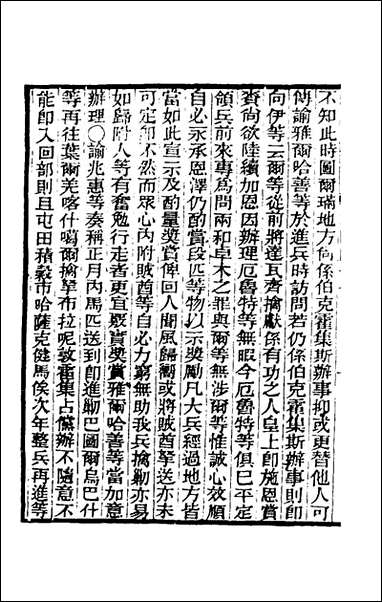 不知此時圖爾璊地方尚係伯克霍集斯辦事抑或更替他人可
傳諭雅爾哈善等於進兵時訪問若仍係伯克霍集斯辦事則即
向伊等云爾等從前將達瓦齊擒獻係有功之人皇上即施恩賞
賚尚欲陸續加恩因辦理厄魯特等無暇今厄魯特等俱已平定
領兵前來專為問兩和卓木之罪與爾等無涉爾等惟誠心效順
自必永承恩澤仍酌賞段匹等物以示奬勵凡大兵經過地方皆
當如此宣示及酌量奬賞俾回人聞風歸嚮或將賊酋拏送亦未
可定即不然而眾心內附賊酋等自必力窮無助我兵擒勦亦易
如歸附人等有奮勉行走者更宜厚賞奬賞雅爾哈善等當加意
辦理〇諭兆惠等奏稱正月內馬匹送到即進勦巴圖爾烏巴什
等再往葉爾羌喀什噶爾擒拏布拉呢敦霍集占儻辦不隨意不
能即入回部則且屯田積穀市哈薩克健馬俟次年整兵再進等